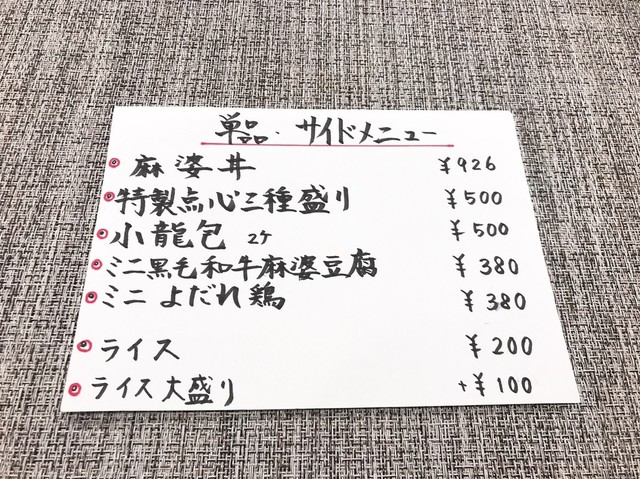 単品・サイドメニュー
麻婆丼 ¥926
特製点心三種盛り ¥500
小龍包 2ケ ¥500
ミニ黒毛和牛麻婆豆腐 ¥380
ミニ よだれ鶏 ¥380
ライス ¥200
ライス大盛り +¥100